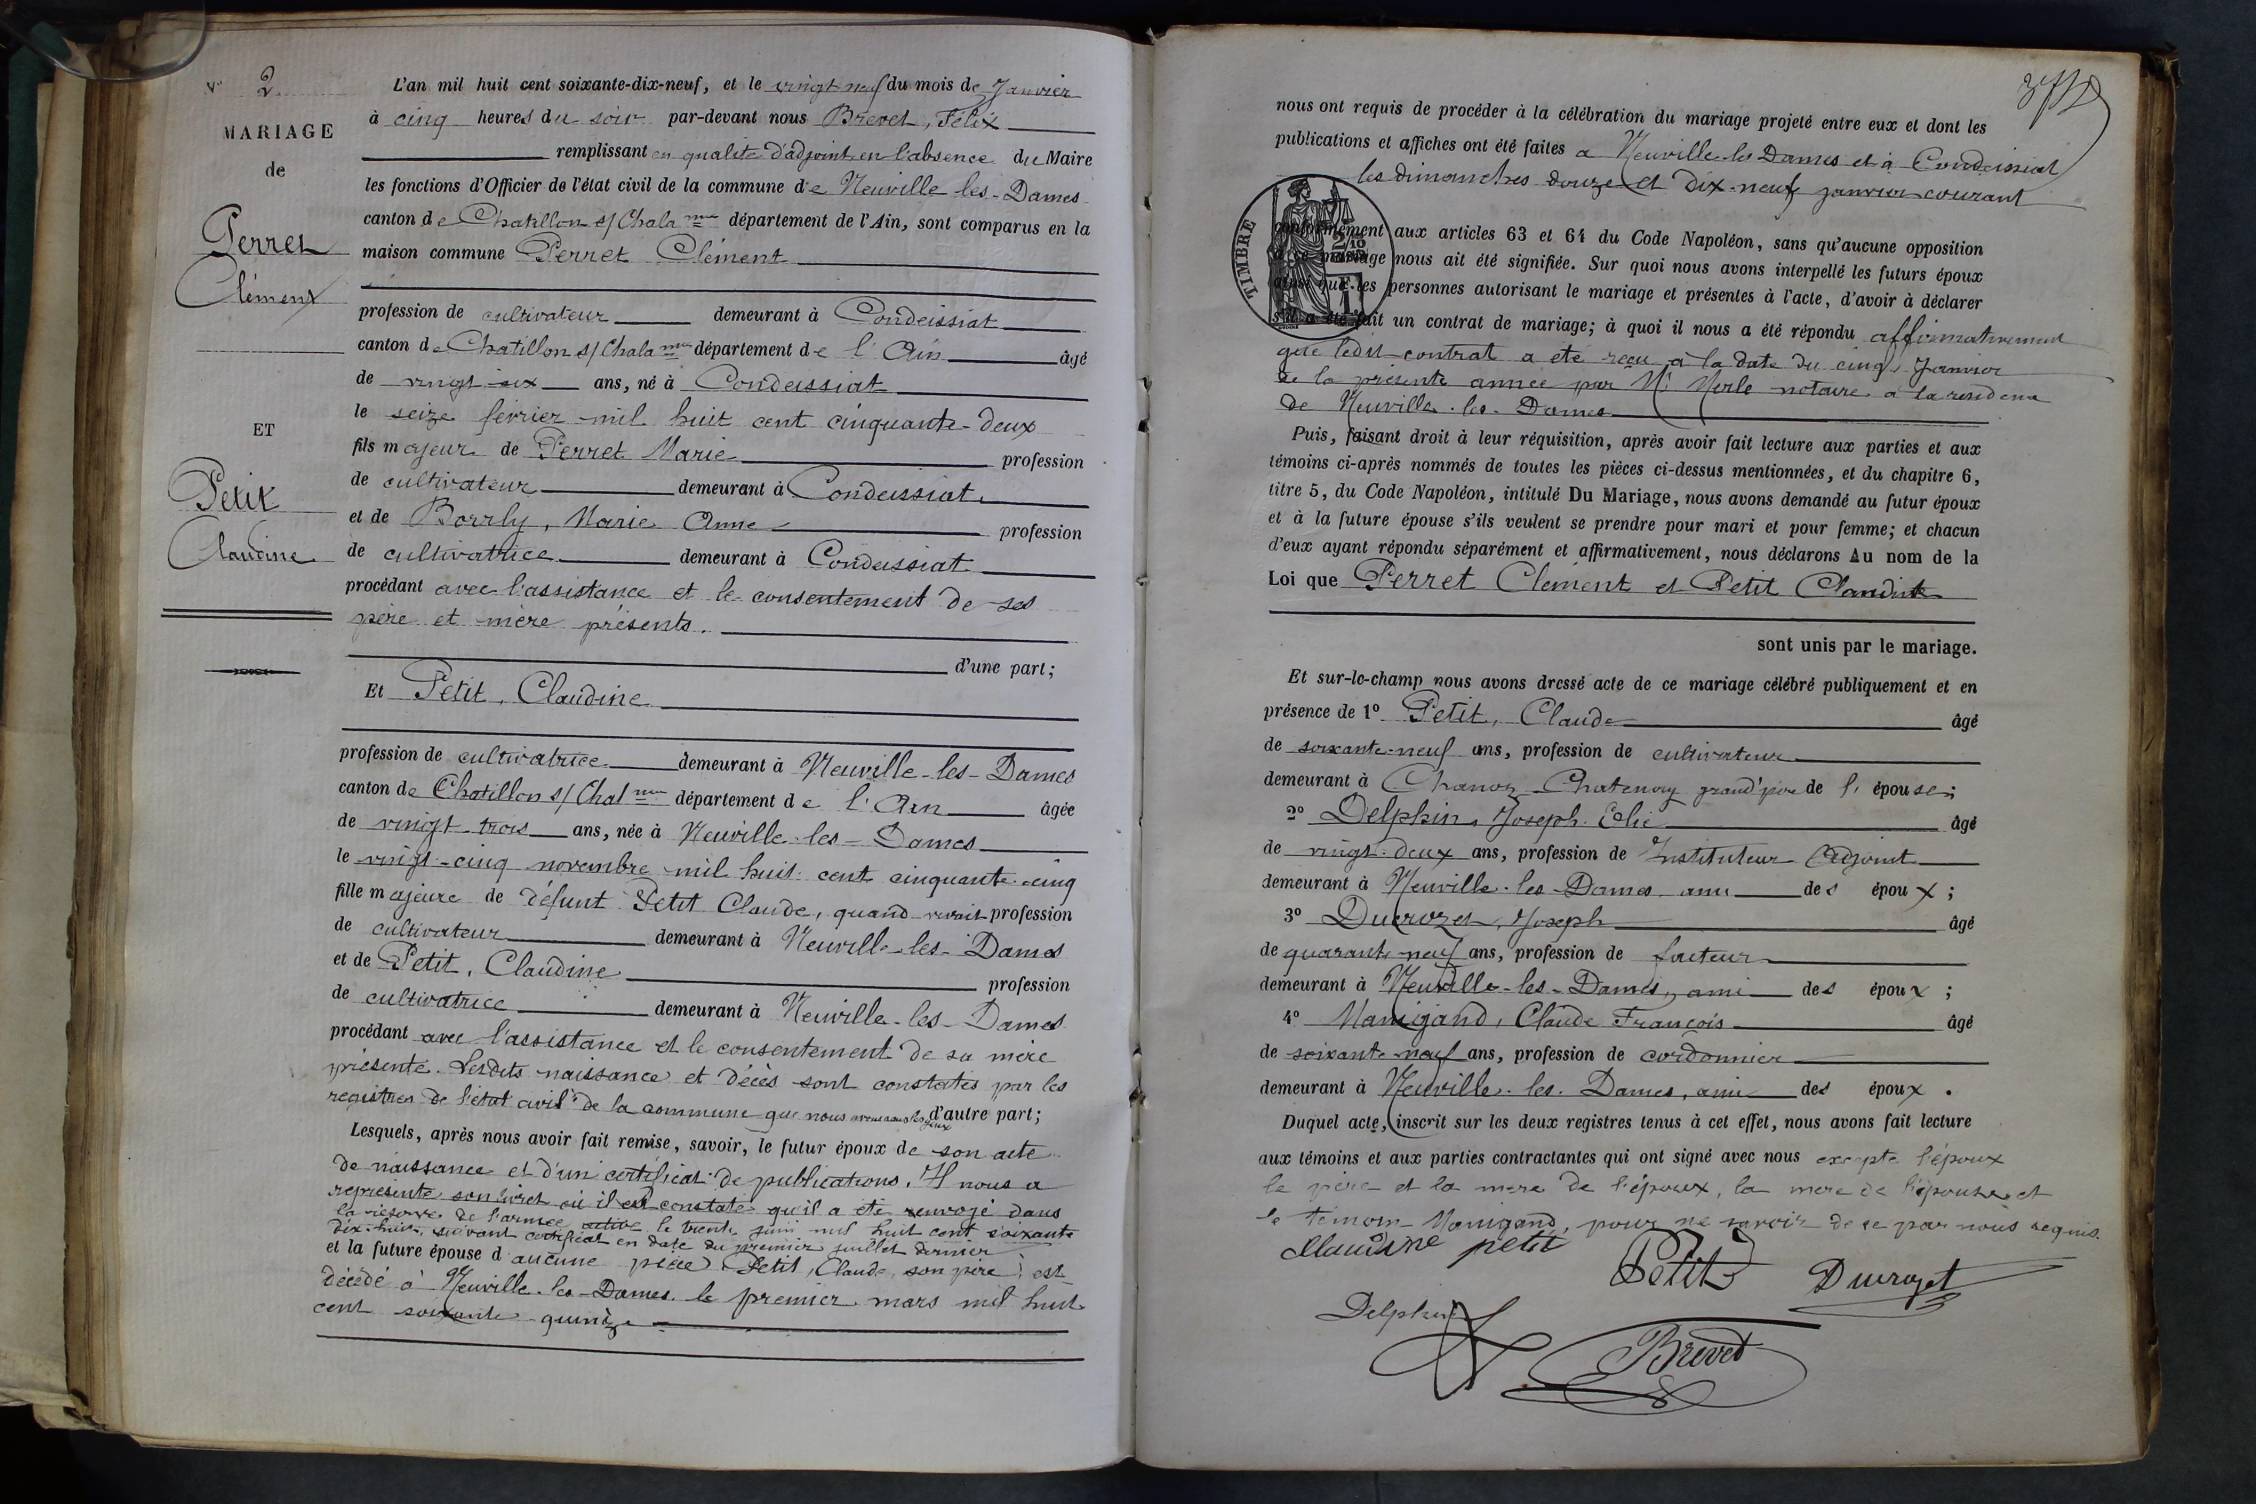 N° 2
MARIAGE
de
Perret
Clément
ET
Petit
Claudine
L'an mil huit cent soixante-dix-neuf, et le vingt neuf du mois de Janvier
à cinq heures du soir par-devant nous Brevet, Félix
remplissant en qualité d'adjoint en l'absence du Maire
les fonctions d'Officier de l'état civil de la commune de Neuville-les-Dames
canton de Chatillon s/ Chala.nne département de l'Ain, sont comparus en la
maison commune Perret Clément
profession de cultivateur demeurant à Condeissiat
canton de Chatillon s/ Chala.nne département de l'Ain âgé
de vingt-six ans, né à Condeissiat
le seize février mil huit cent cinquante-deux
fils majeur de Perret Marie profession
de cultivateur demeurant à Condeissiat
et de Borrly, Marie Anne profession
de cultivatrice demeurant à Condeissiat
procédant avec l'assistance et le consentement de ses
père et mère présents.
d'une part;
Et Petit, Claudine
profession de cultivatrice demeurant à Neuville-les-Dames
canton de Chatillon s/ Chal.nne département de l'Ain âgée
de vingt-trois ans, née à Neuville-les-Dames
le vingt-cinq novembre mil huit cent cinquante-cinq
fille majeure de défunt Petit Claude, quand vivait profession
de cultivateur demeurant à Neuville-les-Dames
et de Petit, Claudine profession
de cultivatrice demeurant à Neuville-les-Dames
procédant avec l'assistance et le consentement de sa mère
présente. Lesdits naissance et décès sont constatés par les
registres de l'état civil de la commune que nous avons sous les yeux d'autre part;
Lesquels, après nous avoir fait remise, savoir, le futur époux de son acte
de naissance et d'un certificat de publications. Il nous a
représenté son livret où il est constaté qu'il a été renvoyé dans
la réserve de l'armée active le trente juin mil huit cent soixante
dix-huit, suivant certificat en date du premier juillet dernier
et la future épouse d'aucune pièce. Petit, Claude, son père, est
décédé à Neuville-les-Dames le premier mars mil huit
cent soixante-quinze
nous ont requis de procéder à la célébration du mariage projeté entre eux et dont les
publications et affiches ont été faites à Neuville-les-Dames et à Condeissiat
les dimanches douze et dix-neuf janvier courant
TIMBRE
conformément aux articles 63 et 64 du Code Napoléon, sans qu'aucune opposition
à ce mariage nous ait été signifiée. Sur quoi nous avons interpellé les futurs époux
ainsi que les personnes autorisant le mariage et présentes à l'acte, d'avoir à déclarer
s'il a été fait un contrat de mariage; à quoi il nous a été répondu affirmativement
que ledit contrat a été reçu à la date du cinq Janvier
de la présente année par Me Merle notaire à la résidence
de Neuville-les-Dames
Puis, faisant droit à leur réquisition, après avoir fait lecture aux parties et aux
témoins ci-après nommés de toutes les pièces ci-dessus mentionnées, et du chapitre 6,
titre 5, du Code Napoléon, intitulé Du Mariage, nous avons demandé au futur époux
et à la future épouse s'ils veulent se prendre pour mari et pour femme; et chacun
d'eux ayant répondu séparément et affirmativement, nous déclarons Au nom de la
Loi que Perret Clément et Petit Claudine
sont unis par le mariage.
Et sur-le-champ nous avons dressé acte de ce mariage célébré publiquement et en
présence de 1° Petit, Claude âgé
de soixante-neuf ans, profession de cultivateur
demeurant à Chanoz-Chatenay grand'père de l'épouse;
2° Delphin, Joseph Elie âgé
de vingt-deux ans, profession de Instituteur Adjoint
demeurant à Neuville-les-Dames ami des époux;
3° Ducrozet, Joseph âgé
de quarante-neuf ans, profession de facteur
demeurant à Neuville-les-Dames, ami des époux;
4° Manigand, Claude François âgé
de soixante-neuf ans, profession de cordonnier
demeurant à Neuville-les-Dames, ami des époux.
Duquel acte, inscrit sur les deux registres tenus à cet effet, nous avons fait lecture
aux témoins et aux parties contractantes qui ont signé avec nous excepté l'époux
le père et la mère de l'époux, la mère de l'épouse et
le témoin Manigand, pour ne savoir de ce par nous requis.
Claudine petit Petit Ducrozet
Delphin Brevet